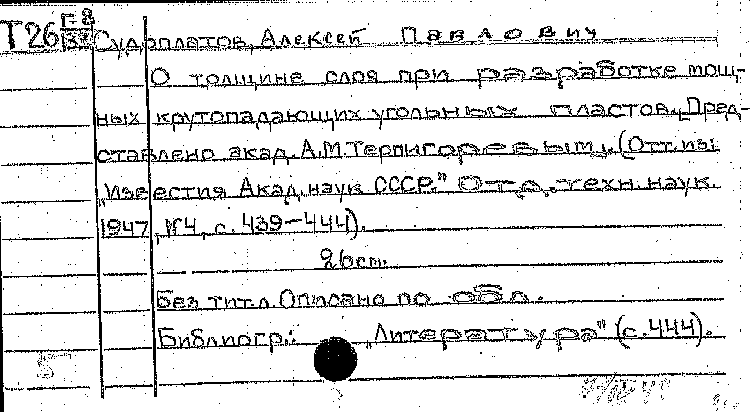 Т26 Г-8
Судоплатов, Алексей Павлович
О толщине слоя при разработке мощ-
ных крутопадающих угольных пластов. „Пред-
ставлено акад. А.М. Терпигоревым". (Отт. из:
„Известия Акад. наук СССР." Отд. техн. наук.
1947, №4, с. 439-444).
26 cm.
Без тит. л. Описано по обл.
Библиогр.: „Литература" (с. 444).